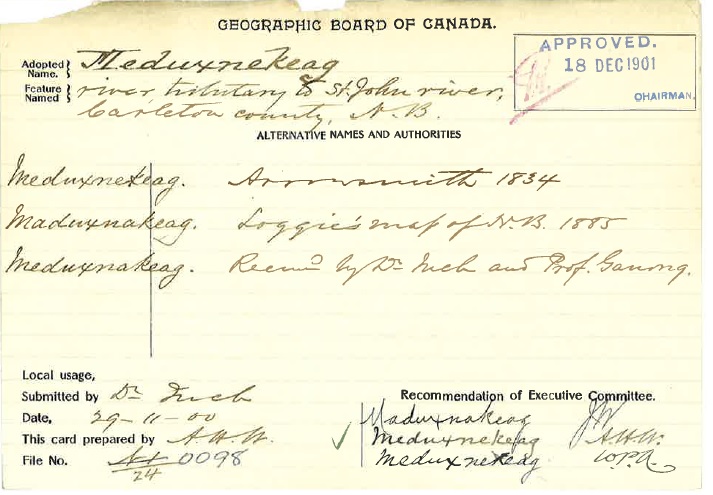 GEOGRAPHIC BOARD OF CANADA.
Adopted Name. Meduxnekeag
APPROVED.
18 DEC 1901
CHAIRMAN.
Feature Named river tributary to St. John river,
Carleton county, N.B.
ALTERNATIVE NAMES AND AUTHORITIES
Meduxnekeag. Arrowsmith 1834
Maduxnakeag. Loggie's map of N.B. 1885
Meduxnakeag. Recmd by Dr Inch and Prof. Ganong.
Local usage,
Submitted by Dr Inch
Date, 29-11-00
This card prepared by A.H.W.
File No. 24 0098
Recommendation of Executive Committee.
Maduxnakeag JW
Meduxnekeag A.H.W.
Meduxnekeag W.P.A.